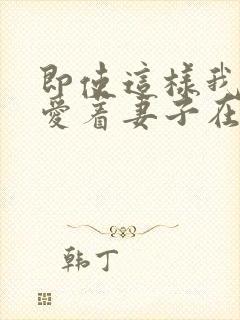 即使這樣我
愛着妻子在
韩丁